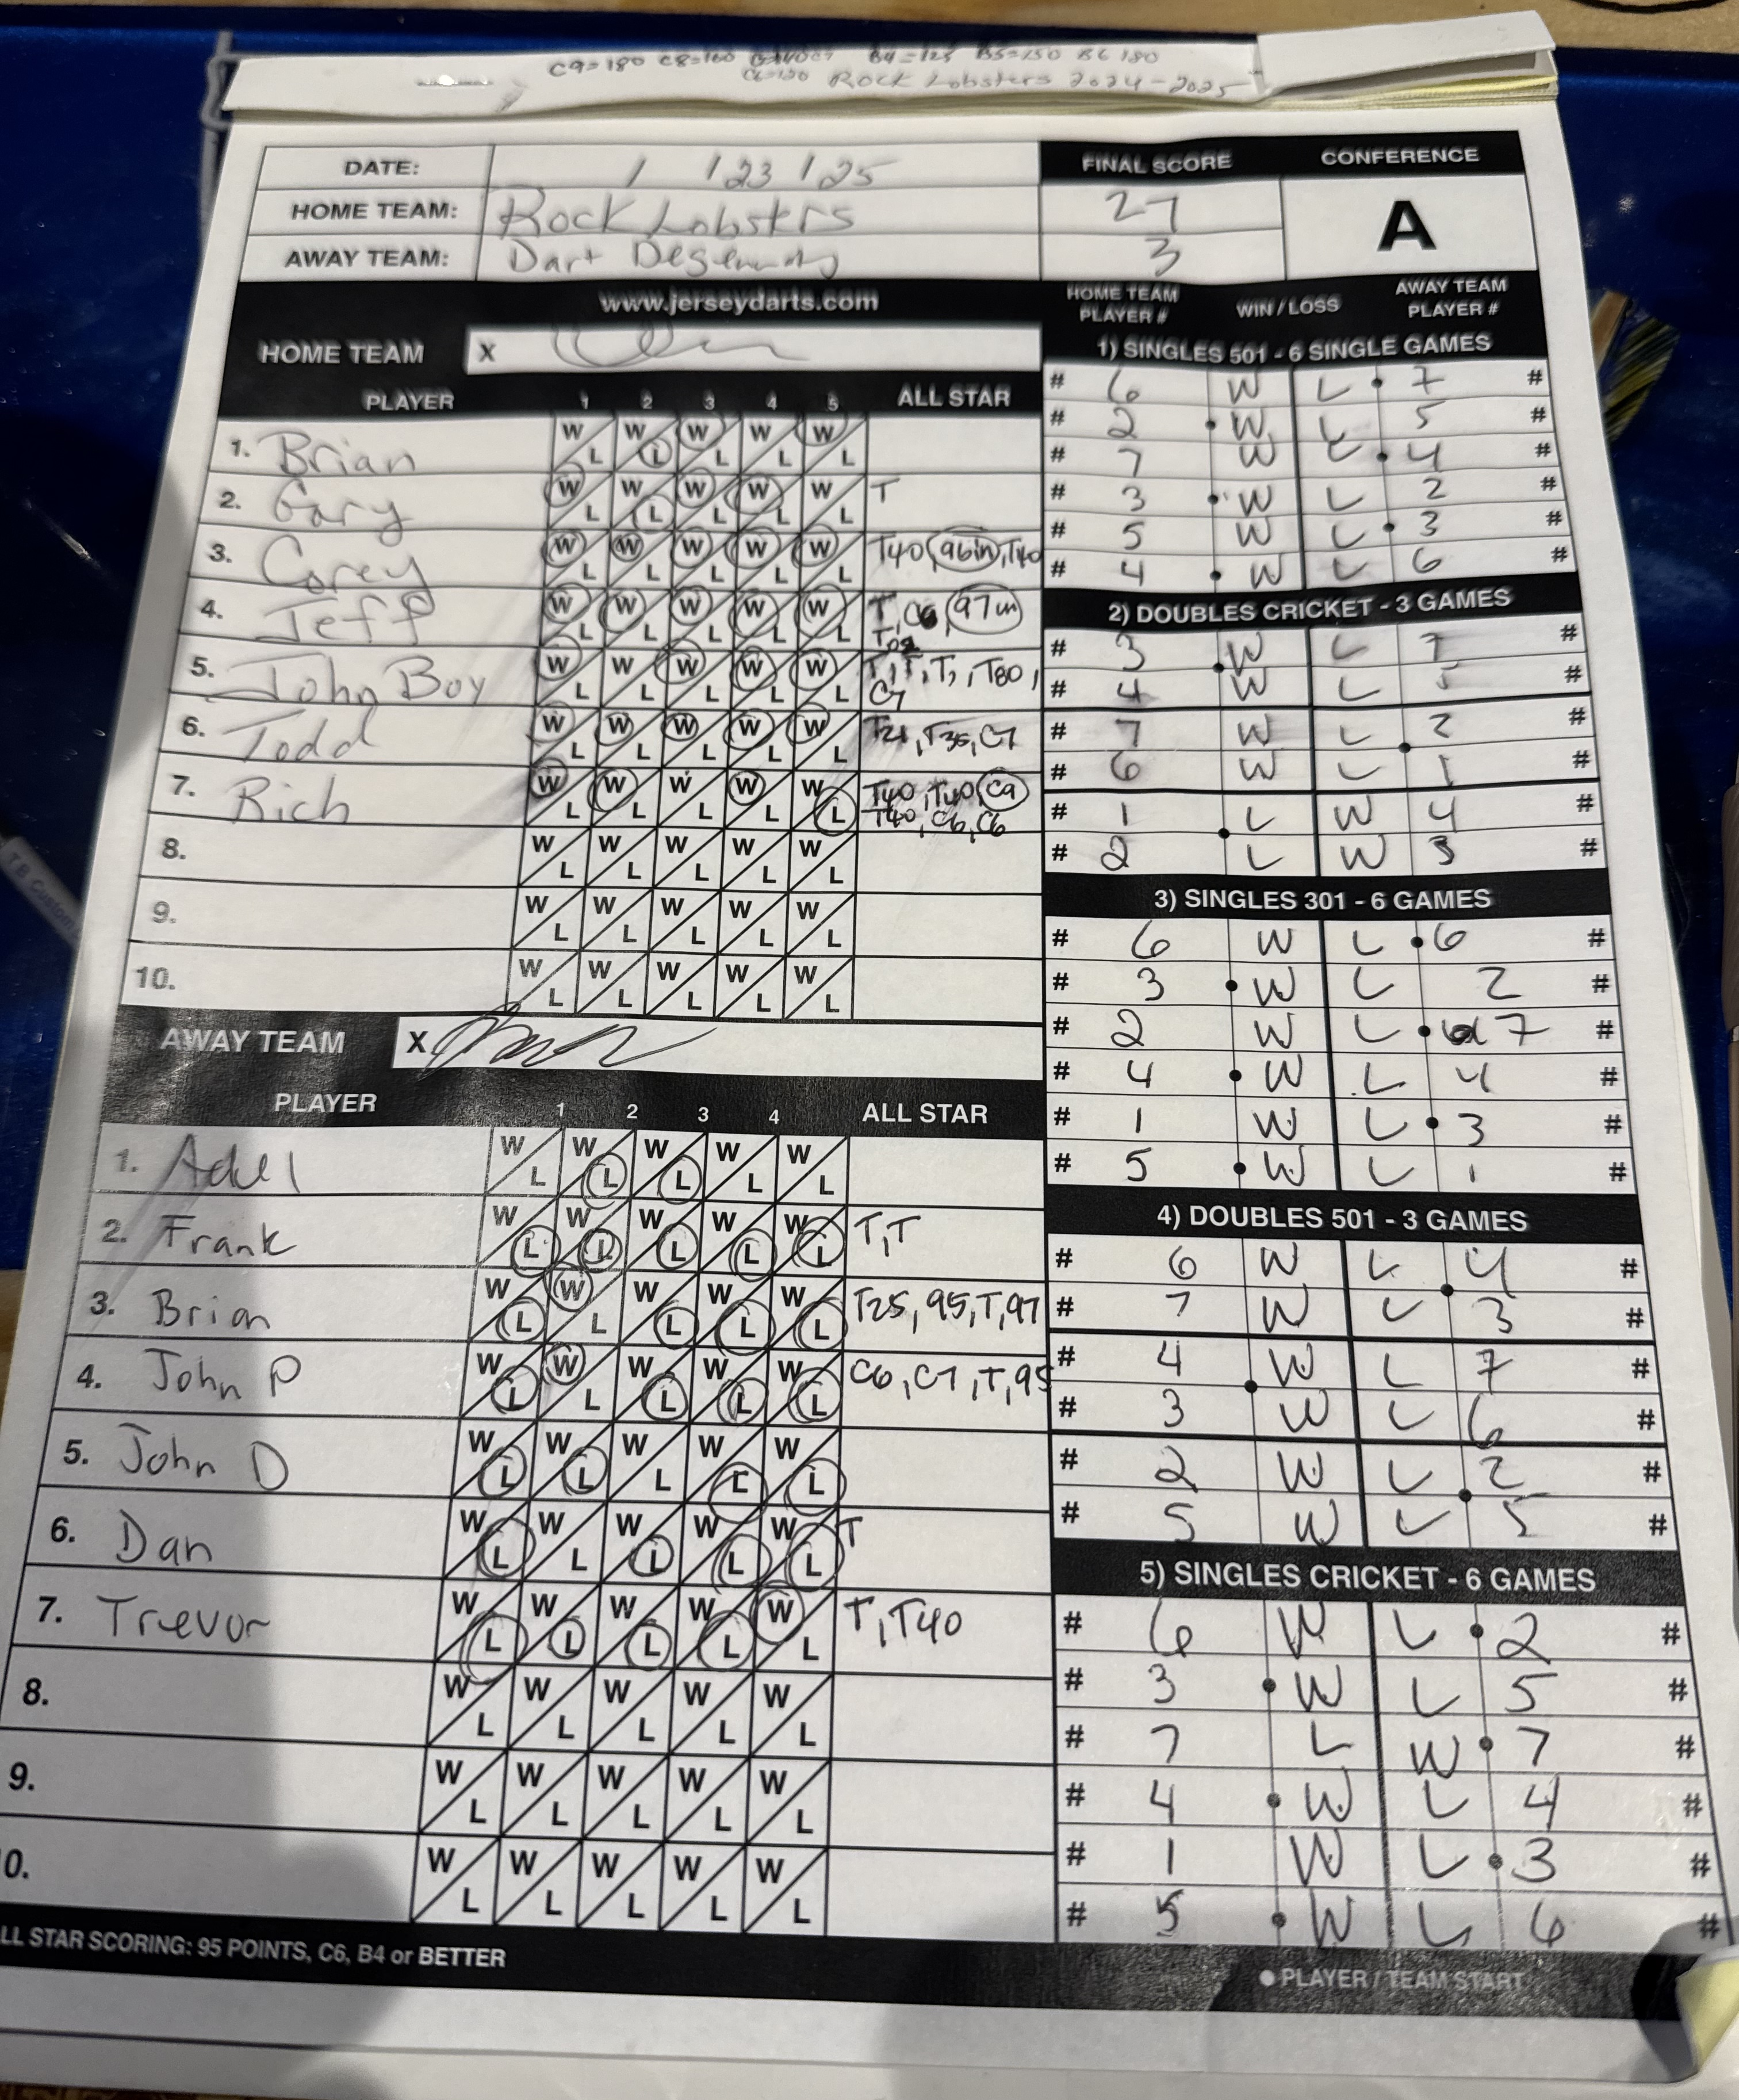 C9=180 C8=160 B4=125 B5=150 B6 180
C6=120 Rock Lobsters 2024-2025
DATE: 1/23/25
HOME TEAM: Rock Lobsters
AWAY TEAM: Dart
FINAL SCORE
27
3
CONFERENCE
A
www.jerseydarts.com
HOME TEAM X
PLAYER 1 2 3 4 5 ALL STAR
1. Brian W L W L W L W L W L
2. Gary W L W L W L W L W L T
3. Corey W L W L W L W L W L T40, 96in, T40
4. Jeff W L W L W L W L W L T, C6, 97in
5. John Boy W L W L W L W L W L T, T, T, T80,
C7
6. Todd W L W L W L W L W L T21, T36, C7
7. Rich W L W L W L W L W L T40, T40, C9
T40, C6, C6
8. W L W L W L W L W L
9. W L W L W L W L W L
10. W L W L W L W L W L
AWAY TEAM X
PLAYER 1 2 3 4 ALL STAR
1. W L W L W L W L W L
2. Frank W L W L W L W L W L T, T
3. Brian W L W L W L W L W L T25, 95, T, 97
4. John P W L W L W L W L W L C6, C7, T, 95
5. John D W L W L W L W L W L
6. Dan W L W L W L W L W L T
7. Trevor W L W L W L W L W L T, T40
8. W L W L W L W L W L
9. W L W L W L W L W L
0. W L W L W L W L W L
LL STAR SCORING: 95 POINTS, C6, B4 or BETTER
HOME TEAM PLAYER # WIN / LOSS AWAY TEAM PLAYER #
1) SINGLES 501 - 6 SINGLE GAMES
# 6 W L • 7 #
# 2 • W L 5 #
# 7 W L • 4 #
# 3 • W L 2 #
# 5 W L • 3 #
# 4 • W L 6 #
2) DOUBLES CRICKET - 3 GAMES
# 3 W L 7 #
# 4 • W L 5 #
# 7 W L 2 #
# 6 W L • 1 #
# 1 L W 4 #
# 2 • L W 3 #
3) SINGLES 301 - 6 GAMES
# 6 W L • 6 #
# 3 • W L 2 #
# 2 W L • 7 #
# 4 • W L 4 #
# 1 W L • 3 #
# 5 • W L 1 #
4) DOUBLES 501 - 3 GAMES
# 6 W L 4 #
# 7 W L • 3 #
# 4 W L 7 #
# 3 • W L 6 #
# 2 W L 2 #
# 5 W L • 5 #
5) SINGLES CRICKET - 6 GAMES
# 6 W L • 2 #
# 3 • W L 5 #
# 7 L W • 7 #
# 4 • W L 4 #
# 1 W L • 3 #
# 5 • W L 6 #
● PLAYER / TEAM START